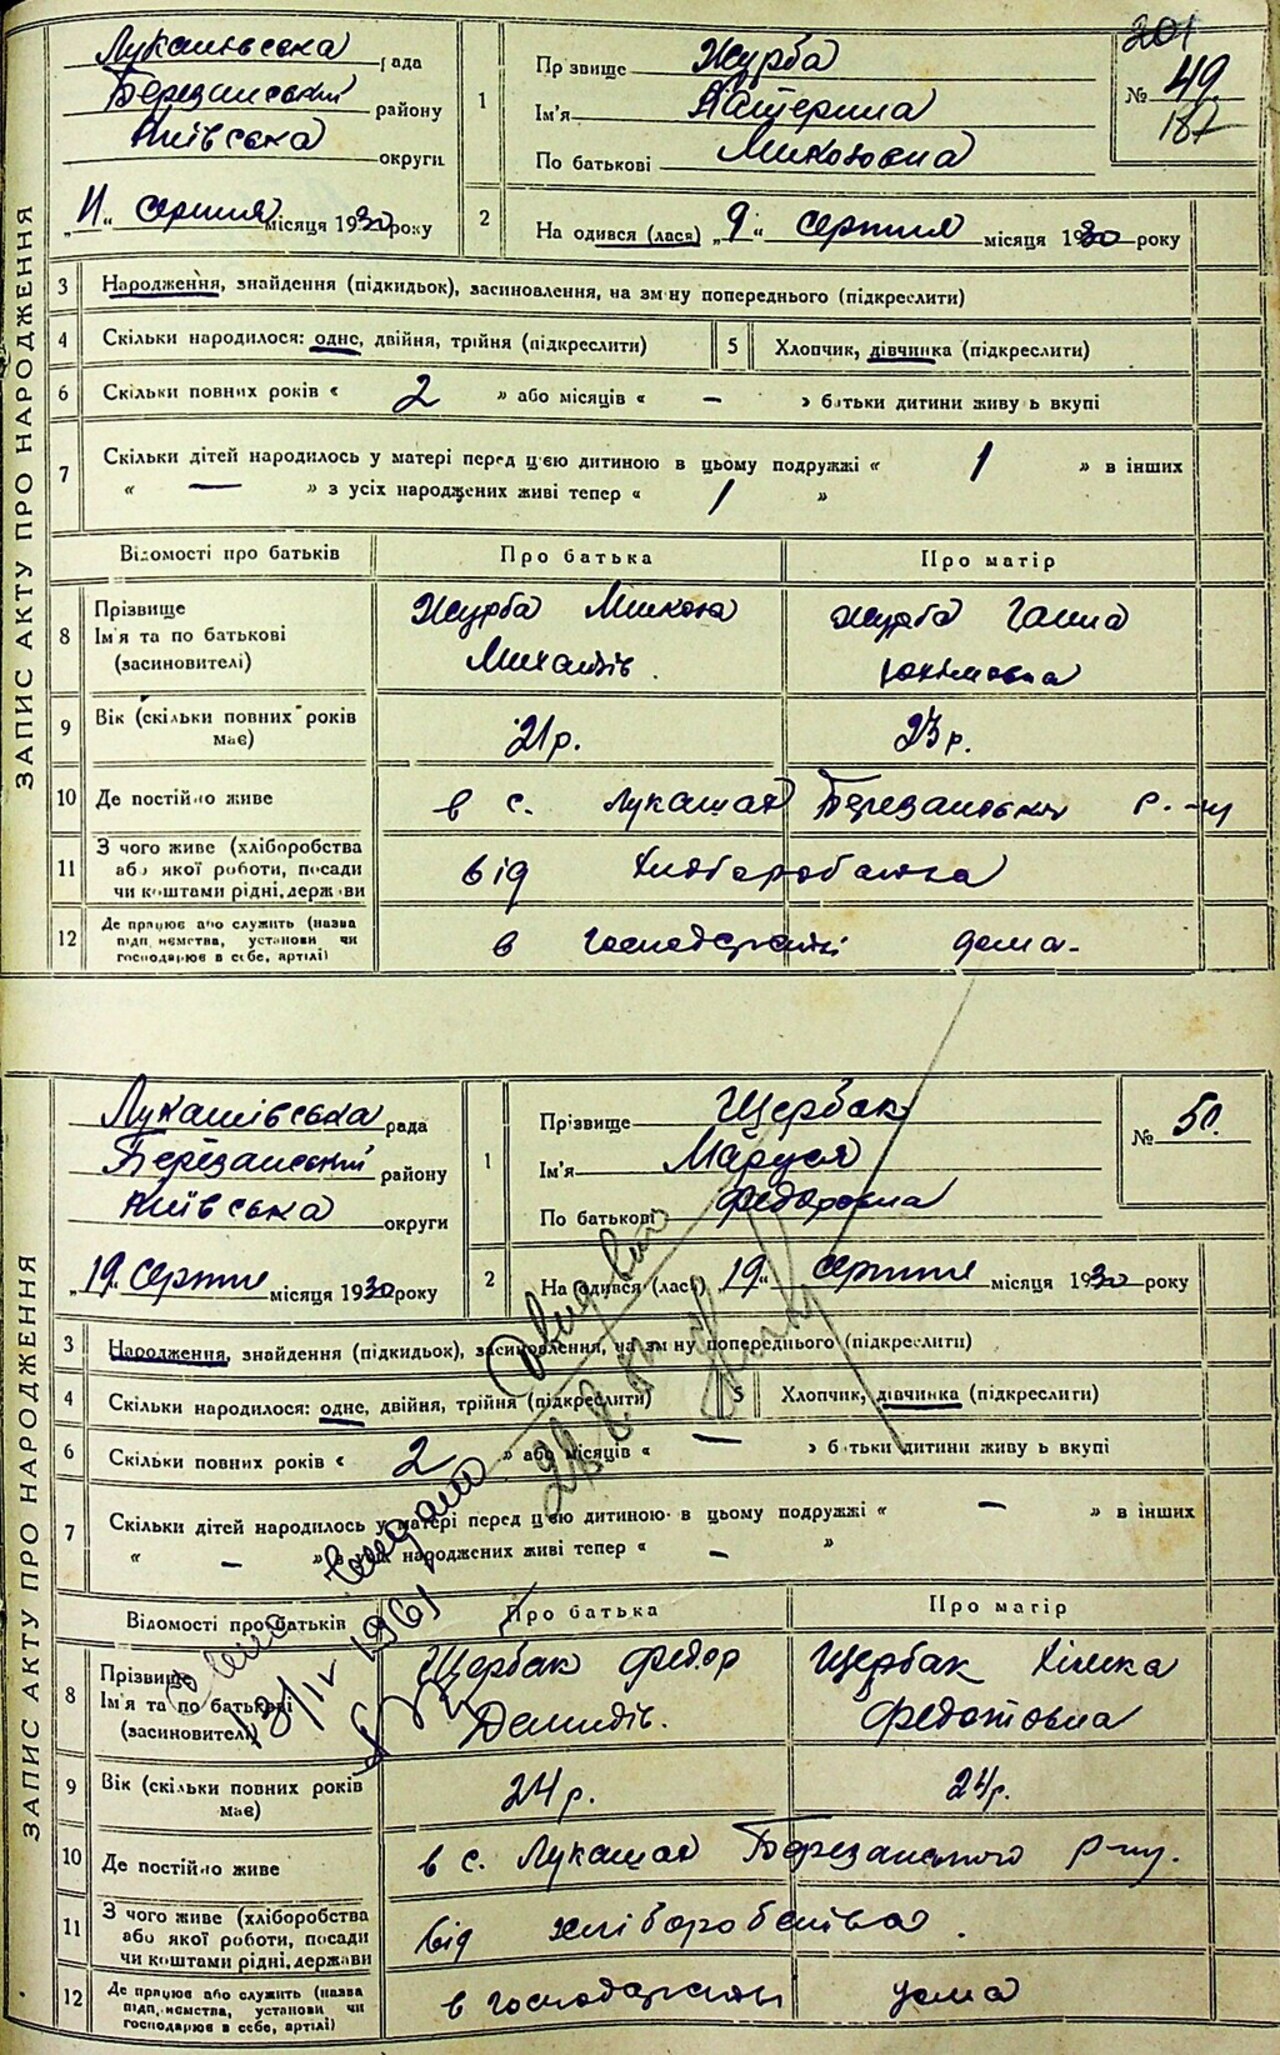 ЗАПИС АКТУ ПРО НАРОДЖЕННЯ
201
Лукашівська рада
Березанський району
Київська округи
11 серпня місяця 1930 року
1
Прізвище Журба
Ім'я Катерина
По батькові Миколовна
№ 49
187
2
На одився (лася) „9“ серпня місяця 1930 року
3 Народження, знайдення (підкидьок), засиновлення, на зм ну попереднього (підкреслити)
4 Скільки народилося: одне, двійня, трійня (підкреслити)
5 Хлопчик, дівчинка (підкреслити)
6 Скільки повних років « 2 » або місяців « – » б тьки дитини живу ь вкупі
7 Скільки дітей народилось у матері перед цією дитиною в цьому подружжі « 1 » в інших
« — » з усіх народжених живі тепер « 1 »
Відомості про батьків Про батька Про матір
8 Прізвище
Ім'я та по батькові
(засиновителі)
Журба Микола
Михайлів.
Журба Ганна
Юхимовна
9 Вік (скільки повних років
має)
21р. 23 р.
10 Де постійно живе в с. Лукашах Березанськ р.-ну
11 З чого живе (хліборобства
або якої роботи, посади
чи коштами рідні, держави
від хліборобства
12 Де працює або служить (назва
підп ємства, установи чи
господарює в себе, артілі)
в господарстві дома-
ЗАПИС АКТУ ПРО НАРОДЖЕННЯ
Лукашівська рада
Березанський району
Київська округи
„19“ серпня місяця 1930 року
1
Прізвище Щербак
Ім'я Маруся
По батькові Федоровна
№ 50.
2
На одився (лася) „19“ серпня місяця 1930 року
3 Народження, знайдення (підкидьок), засиновлення, на зм ну попереднього (підкреслити)
4 Скільки народилося: одне, двійня, трійня (підкреслити)
5 Хлопчик, дівчинка (підкреслити)
6 Скільки повних років « 2 » або місяців « — » б тьки дитини живу ь вкупі
7 Скільки дітей народилось у матері перед цією дитиною в цьому подружжі « – » в інших
« – » з усіх народжених живі тепер « – »
видано
18/IV 1961
Відомості про батьків Про батька Про матір
8 Прізвище
Ім'я та по батькові
(засиновителі)
Щербак Федор
Демидів.
Щербак Хімка
Федотовна
9 Вік (скільки повних років
має)
24р. 24р.
10 Де постійно живе в с. Лукашах Березанського р-ну.
11 З чого живе (хліборобства
або якої роботи, посади
чи коштами рідні, держави
від хліборобства.
12 Де працює або служить (назва
підп ємства, установи чи
господарює в себе, артілі)
в господарстві дома